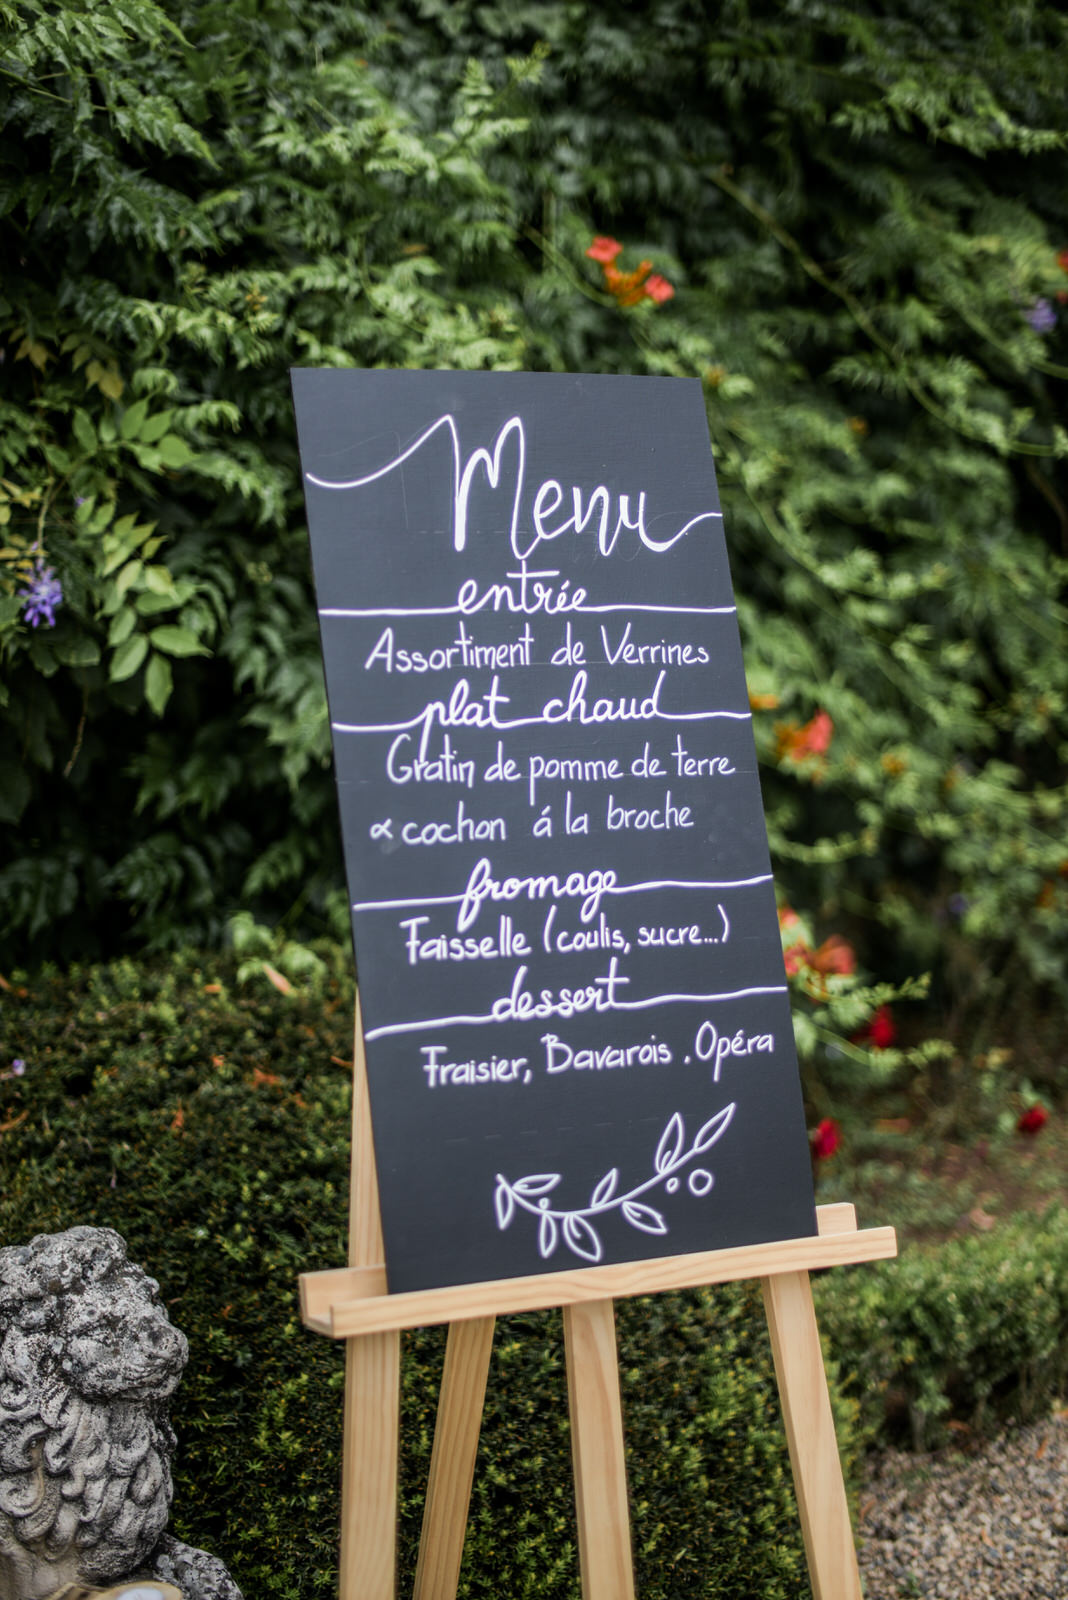 Menu
entrée
Assortiment de Verrines
plat chaud
Gratin de pomme de terre
& cochon á la broche
fromage
Faisselle (coulis, sucre...)
dessert
Fraisier, Bavarois . Opéra